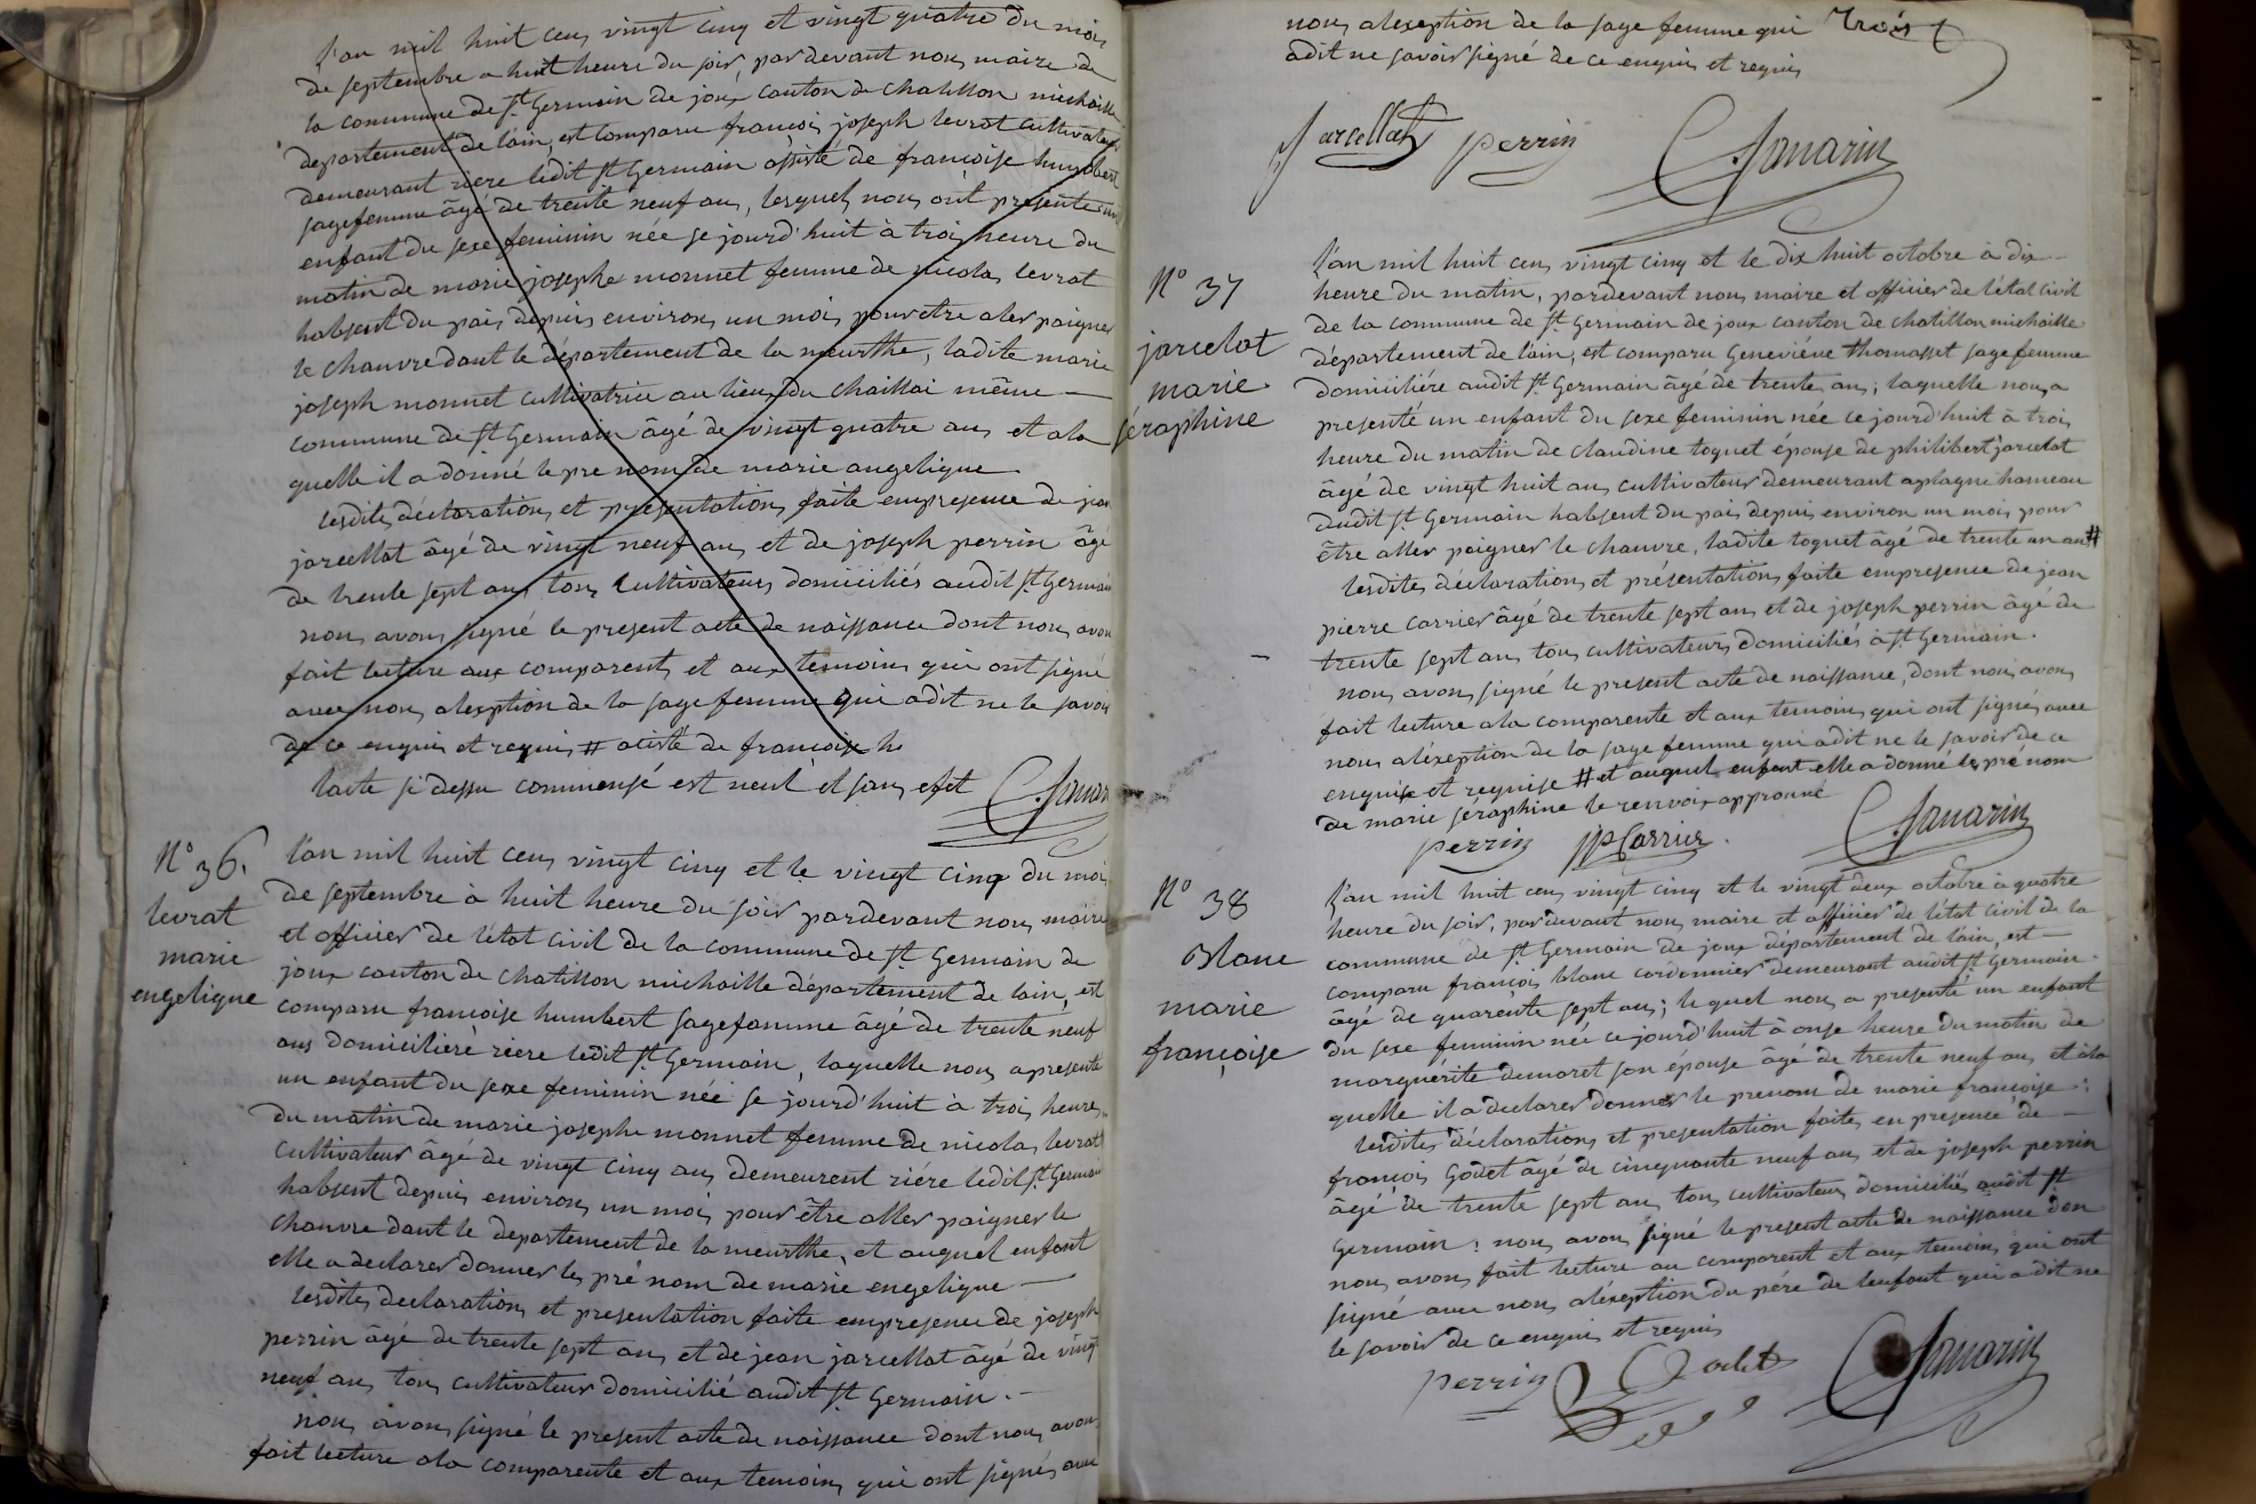 L'an mil huit cens vingt cinq et vingt quatre du mois
de septembre a huit heure du soir, pardevant nous maire de
la commune de St Germain de joux canton de chatillon michaille
departement de l'ain, est comparu françois joseph levrat cultivateur
demeurant riere ledit St Germain assisté de françoise humbert
sagefemme âgé de trente neuf ans, lesquels nous ont presente un
enfant du sexe feminin née se jourd'huit à trois heure du
matin de marie josephe monnet femme de nicolas levrat
habsent du pais depuis environs un mois pour etre aler paigner
le chauvre dant le département de la meurthe, ladite marie
joseph monnet cultivatrice au lieux du chaillai même
commune de St Germain âgé de vingt quatre ans et ala
quelle il a donné le pre nom de marie angelique
lesdites déclarations et presentations faite empresence de jean
jarcellat âgé de vingt neuf ans et de joseph perrin âgé
de trente sept ans tous cultivateurs domiciliés audit St Germain
nous avons signé le present acte de naissance dont nous avons
fait lecture aux comparents et aux temoins qui ont signé
avec nous alexption de la sage femme qui adit ne le savoir
de ce enquis et requis # acisté de françoise h
lacte si dessu commensé est neul et sans efet
N° 36.
levrat
marie
engelique
L'an mil huit cens vingt cinq et le vingt cinq du mois
de septembre à huit heure du soir pardevant nous maire
et officier de l'état civil de la commune de St Germain de
joux canton de chatillon michaille département de l'ain, est
comparu françoise humbert sagefamme âgé de trente neuf
ans domiciliére riere ledit St Germain, laquelle nous apresente
un enfant du sexe feminin née se jourd'huit à trois heures
du matin de marie josephe monnet femme de nicolas levrat
cultivateur âgé de vingt cinq ans demeurent riére ledit St Germain
habsent depuis environs un mois pour être aller paigner le
chauvre dant le departement de la meurthe, et auquel enfant
elle a declarer donner les pré nom de marie engelique
lesdites declarations et presentation faite empresence de joseph
perrin âgé de trente sept ans et de jean jarcellat âgé de vingt
neuf ans tous cultivateur domicilié audit St Germain.
nous avons signé le present acte de naissance dont nous avons
fait lecture ala comparente et aux temoins qui ont signés avec
nous alexeption de la sage femme qui trois
adit ne savoir signé de ce enquis et requis
Jarcellat perrin
N° 37
jarcelat
marie
séraphine
L'an mil huit cens vingt cinq et le dix huit octobre à dix
heure du matin, pardevant nous maire et officier de l'état civil
de la commune de St Germain de joux canton de chatillon michaille
département de l'ain, est comparu Geneviéve thomasset sagefemme
domiciliére audit St Germain âgé de trente ans; laquelle nous a
presenté un enfant du sexe feminin née ce jourd'huit à trois
heure du matin de claudine toquet épouse de philibert jarcelat
âgé de vingt huit ans cultivateur demeurant aplagne hameau
dudit St Germain habsent du pais depuis environ un mois pour
être aller paigner le chauvre, ladite toquet âgé de trente un ans #
lesdites déclarations et présentations faite empresence de jean
pierre carrier âgé de trente sept ans et de joseph perrin âgé de
trente sept ans tous cultivateurs domiciliés à St Germain.
nous avons signé le present acte de naissance, dont nous avons
fait lecture ala comparente et aux temoins qui ont signés avec
nous aléxeption de la sage femme qui adit ne le savoir de ce
enquise et requise # et auquel enfant elle a donné les pré nom
de marie séraphine le renvoix approuvé
perrin JP Carrier
N° 38
Blanc
marie
françoise
L'an mil huit cens vingt cinq et le vingt deux octobre à quatre
heure du soir, pardevant nous maire et officier de l'état civil de la
commune de St Germain de joux département de l'ain, est
comparu françois blanc cordonnier demeurant audit St Germain
âgé de quarente sept ans; le quel nous a presenté un enfant
du sexe feminin née ce jourd'huit à onse heure du matin de
marguérite demaret son épouse âgé de trente neuf ans et àla
quelle il a declarer donner le prenom de marie françoise;
lesdites déclarations et presentation faites en presence de
françois Godet âgé de cinquante neuf ans et de joseph perrin
âgé de trente sept ans tous cultivateurs domiciliés audit St
Germain; nous avons signé le present acte de naissance don
nous avons fait lecture au comparent et aux temoins qui ont
signé avec nous aléxeption du pére de lenfant qui a dit ne
le savoir de ce enquis et requis
perrin Godet